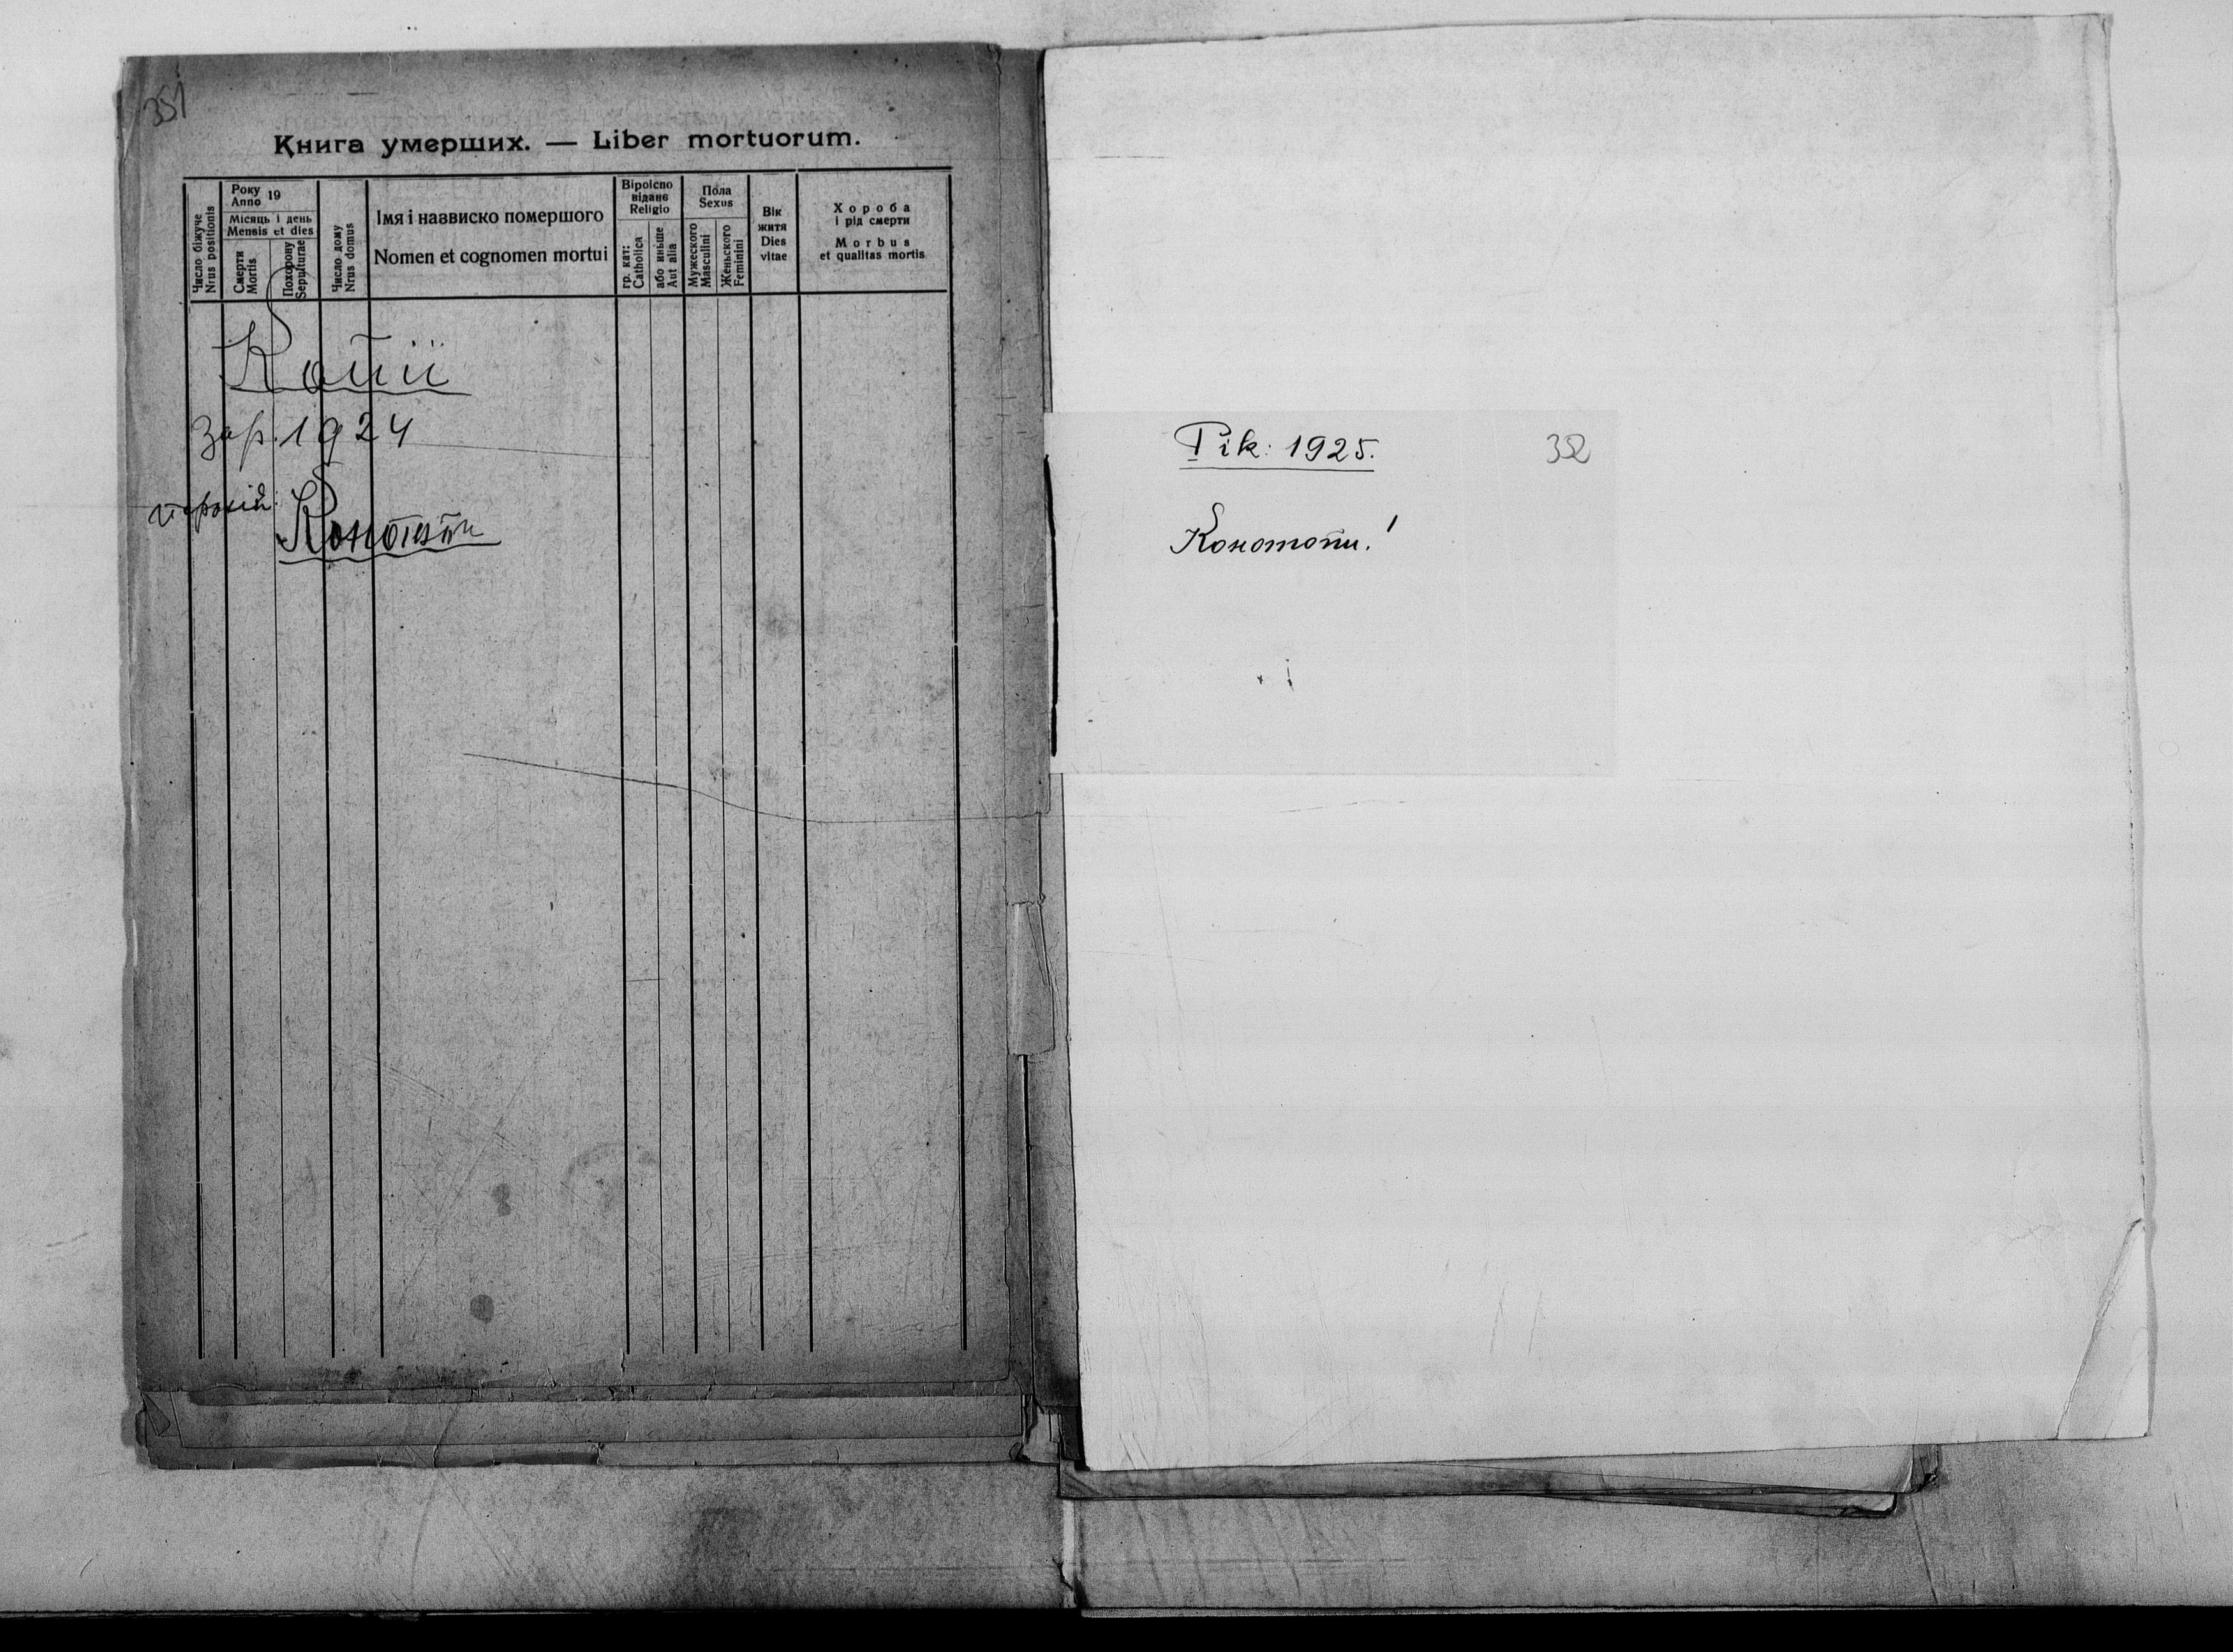 351
Книга умерших. — Liber mortuorum.
Число біжуче
Nrus positionis
Року
Anno 19
Місяць і день
Mensis et dies
Смерти
Mortis
Похорону
Sepulturae
Число дому
Nrus domus
Імя і назвиско помершого
Nomen et cognomen mortui
Віроісповідане
Religio
гр. кат:
Catholica
або иньше
Aut alia
Пола
Sexus
Мужеского
Masculini
Женьского
Feminini
Вік
житя
Dies
vitae
Хороба
і рід смерти
Morbus
et qualitas mortis
Копії
за р. 1924
парохій:
Конотопи
Рік: 1925.
352
Конотопи.